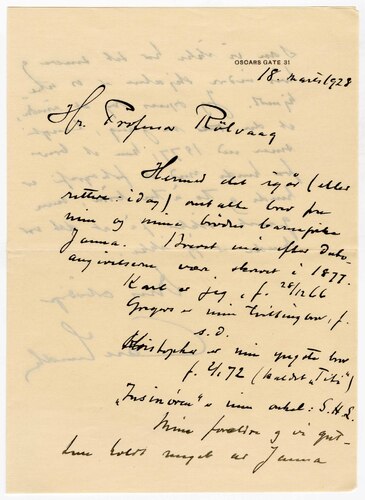 OSCARS GATE 31
18. marts 1928
Hr. Professor Rölvaag
Hermed det igår (eller
rettere: idag) omtalte brev fra
min og mine brødres barnepike
Janna. Brevet må efter
angivelserne være skrevet i 1877.
Karl er jeg, f. 28/12 66
Gregers er min tvillingbror, f.
s. d.
Kristopher er min yngste bror
f. 2/1 72 (kaldet „Titi")
„ " er min onkel: S. H. L.
Mine foreldre og vi gut-
tene holdt meget av Janna